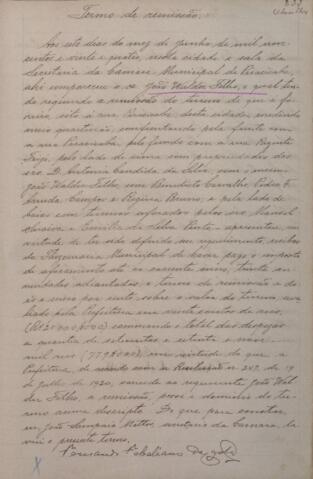 Termo de remissão.
Aos sete dias do mez de Junho de mil nove
centos e vinte e quatro, nesta cidade e sala da
Secretaria da Camara Municipal de Piracicaba,
ahi compareceu o sr. João Walder Filho, o qual ten
do requerido a remissão do terreno de que é fo
reiro, sito á rua desta cidade, medindo
meio quarteirão, confrontando pela frente com
a rua pelo fundo com a rua Regente
Feijó, pelo lado de cima com propriedades dos
srs. D. Antonia Candida da Silva,
João Walder Filho, Benedicto Carvalho, Pedro F.
Campos e Regina Bruno; e pelo lado de
baixo com terrenos aforados pelos srs. Manoel
e Emilia da Silva apresentou, em
virtude de ter sido deferido seu requerimento, recibos
da Procuradoria Municipal de haver pago o imposto
de aforamento até o corrente anno, trinta an
nuidades adiantadas, e taxa de remissão a
por cento sobre o valor do terreno, ava
liado pela Prefeitura em vinte contos de reis,
sommando o total das despezas
a quantia de setecentos e setenta e nove
mil reis (779$000), em virtude do que a
Prefeitura, de accordo com a Resolução nº 207, de 19
de Julho de 1920, concede ao requerente João Wal
der Filho, a remissão, posse e dominio do ter
reno acima descripto. Do que para constar,
eu João Sampaio Mattos, secretario da Camara, la
vrei o presente termo.
Fernando Febeliano da Costa